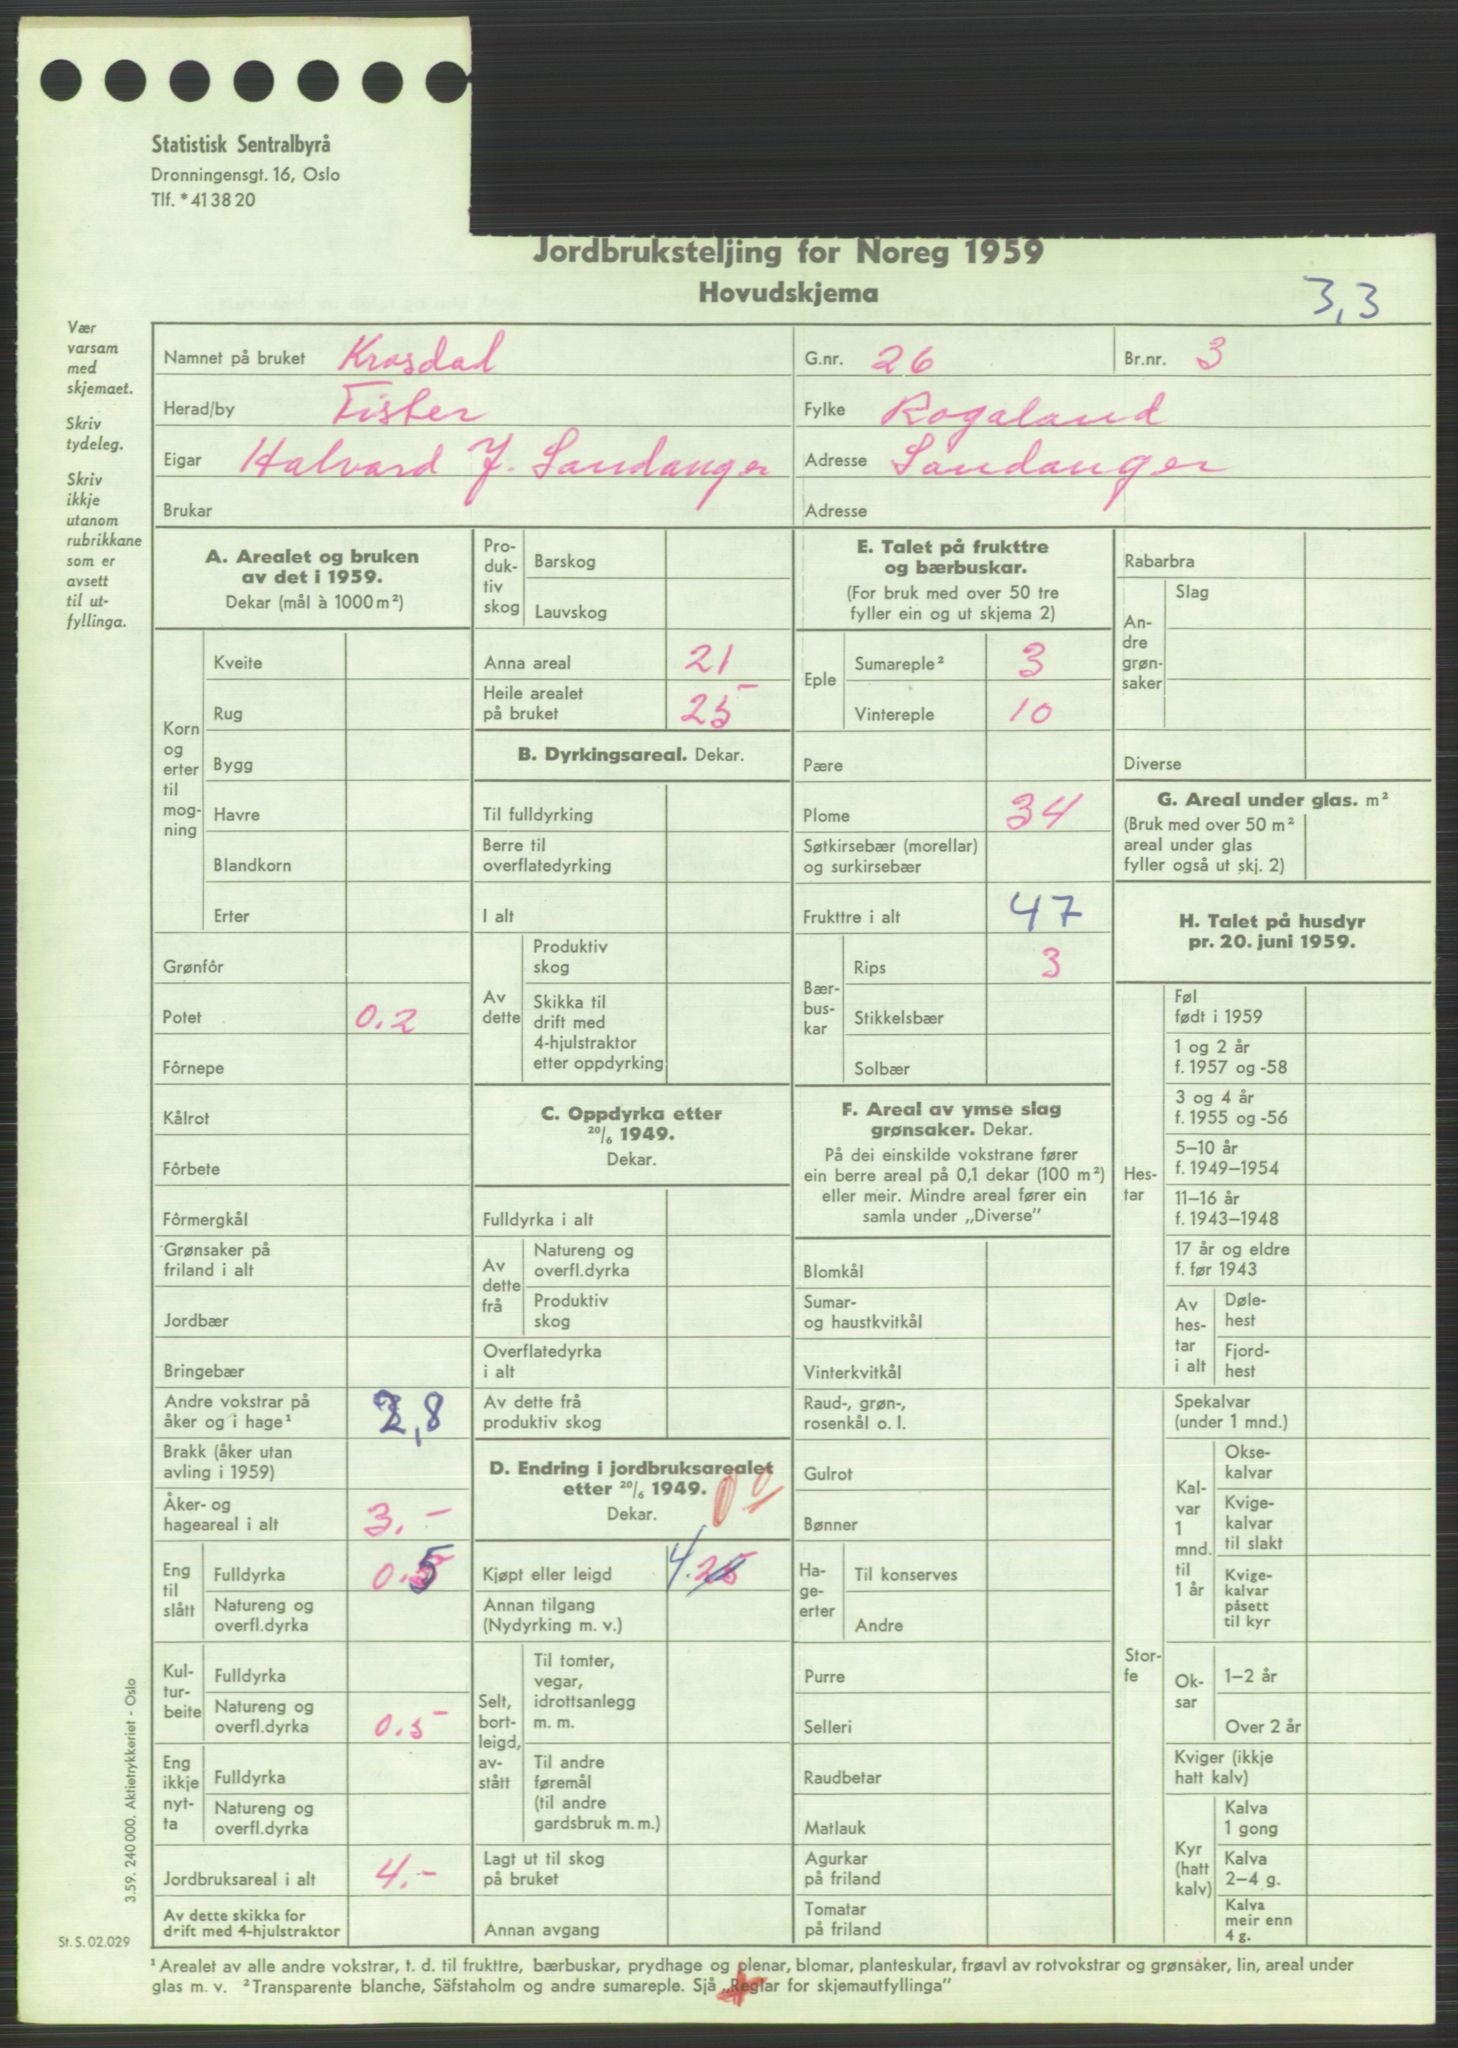 Statistisk Sentralbyrå
Dronningensgt. 16, Oslo
Tlf. * 41 38 20
Jordbruksteljing for Noreg 1959
Hovudskjema
3,3
Vær
varsam
med
skjemaet.
Skriv
tydeleg.
Skriv
ikkje
utanom
rubrikkane
som er
avsett
til ut-
fyllinga.
Namnet på bruket Krosdad G.nr. 26 Br.nr. 3
Herad/by Fister Fylke Rogaland
Eigar Halvard J. Sandanger Adresse Sandanger
Brukar Adresse
A. Arealet og bruken
av det i 1959.
Dekar (mål à 1000 m²)
Korn
og
erter
til
mog-
ning
Kveite
Rug
Bygg
Havre
Blandkorn
Erter
Grønfôr
Potet 0.2
Fôrnepe
Kålrot
Fôrbete
Fôrmergkål
Grønsaker på
friland i alt
Jordbær
Bringebær
Andre vokstrar på
åker og i hage¹ 2,8
Brakk (åker utan
avling i 1959)
Åker- og
hageareal i alt 3.-
Eng
til
slått
Fulldyrka 0.5
Natureng og
overfl.dyrka
Kul-
tur-
beite
Fulldyrka
Natureng og
overfl.dyrka 0.5
Eng
ikkje
nyt-
ta
Fulldyrka
Natureng og
overfl.dyrka
Jordbruksareal i alt 4.-
Av dette skikka for
drift med 4-hjulstraktor
Pro-
duk-
tiv
skog
Barskog
Lauvskog
Anna areal 21
Heile arealet
på bruket 25
B. Dyrkingsareal. Dekar.
Til fulldyrking
Berre til
overflatedyrking
I alt
Av
dette
Produktiv
skog
Skikka til
drift med
4-hjulstraktor
etter oppdyrking
C. Oppdyrka etter
20/6 1949.
Dekar.
Fulldyrka i alt
Av
dette
frå
Natureng og
overfl.dyrka
Produktiv
skog
Overflatedyrka
i alt
Av dette frå
produktiv skog
D. Endring i jordbruksarealet
etter 20/6 1949.
Dekar.
Kjøpt eller leigd 4. 25
Annan tilgang
(Nydyrking m. v.)
Selt,
bort-
leigd,
av-
stått
Til tomter,
vegar,
idrottsanlegg
m. m.
Til andre
føremål
(til andre
gardsbruk m. m.)
Lagt ut til skog
på bruket
Annan avgang
E. Talet på frukttre
og bærbuskar.
(For bruk med over 50 tre
fyller ein og ut skjema 2)
Eple
Sumareple² 3
Vintereple 10
Pære
Plome 34
Søtkirsebær (morellar)
og surkirsebær
Frukttre i alt 47
Bær-
bus-
kar
Rips 3
Stikkelsbær
Solbær
F. Areal av ymse slag
grønsaker. Dekar.
På dei einskilde vokstrane fører
ein berre areal på 0,1 dekar (100 m²)
eller meir. Mindre areal fører ein
samla under „Diverse”
Blomkål
Sumar-
og haustkvitkål
Vinterkvitkål
Raud-, grøn-,
rosenkål o. l.
Gulrot
Bønner
Ha-
ge-
erter
Til konserves
Andre
Purre
Selleri
Raudbetar
Matlauk
Agurkar
på friland
Tomatar
på friland
Rabarbra
An-
dre
grøn-
saker
Slag
Diverse
G. Areal under glas. m²
(Bruk med over 50 m²
areal under glas
fyller også ut skj. 2)
H. Talet på husdyr
pr. 20. juni 1959.
Hes-
tar
Føl
født i 1959
1 og 2 år
f. 1957 og -58
3 og 4 år
f. 1955 og -56
5–10 år
f. 1949–1954
11–16 år
f. 1943–1948
17 år og eldre
f. før 1943
Av
hes-
tar
i alt
Døle-
hest
Fjord-
hest
Stor-
fe
Spekalvar
(under 1 mnd.)
Kal-
var
1
mnd.
til
1 år
Okse-
kalvar
Kvige-
kalvar
til slakt
Kvige-
kalvar
påsett
til kyr
Ok-
sar
1–2 år
Over 2 år
Kviger (ikkje
hatt kalv)
Kyr
(hatt
kalv)
Kalva
1 gong
Kalva
2–4 g.
Kalva
meir enn
4 g.
3.59. 240 000. Aktietrykkeriet - Oslo
St. S. 02.029
¹ Arealet av alle andre vokstrar, t. d. til frukttre, bærbuskar, prydhage og plenar, blomar, planteskular, frøavl av rotvokstrar og grønsaker, lin, areal under
glas m. v. ² Transparente blanche, Säfstaholm og andre sumareple. Sjå „Reglar for skjemautfyllinga”